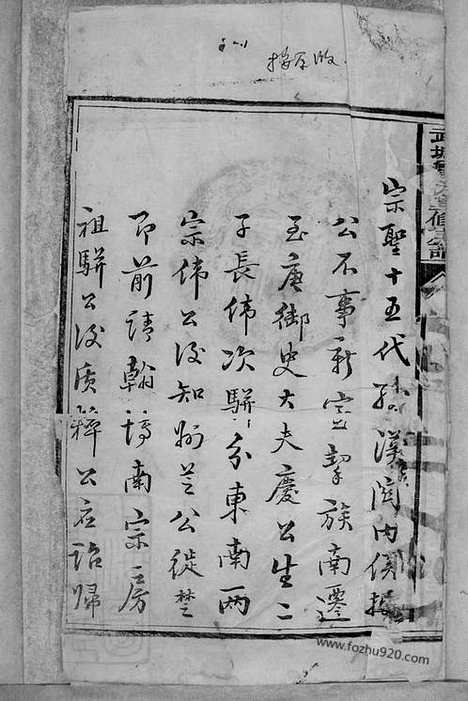 宗聖十五代孫漢関内侯據
公不事新室挈族南遷
至唐御史大夫慶公生二
子長偉次駢分東南兩
宗偉公後知州芸公徙楚
即前請翰博南宗房
祖駢公後質粹公应詔歸
www.fozhu920.com